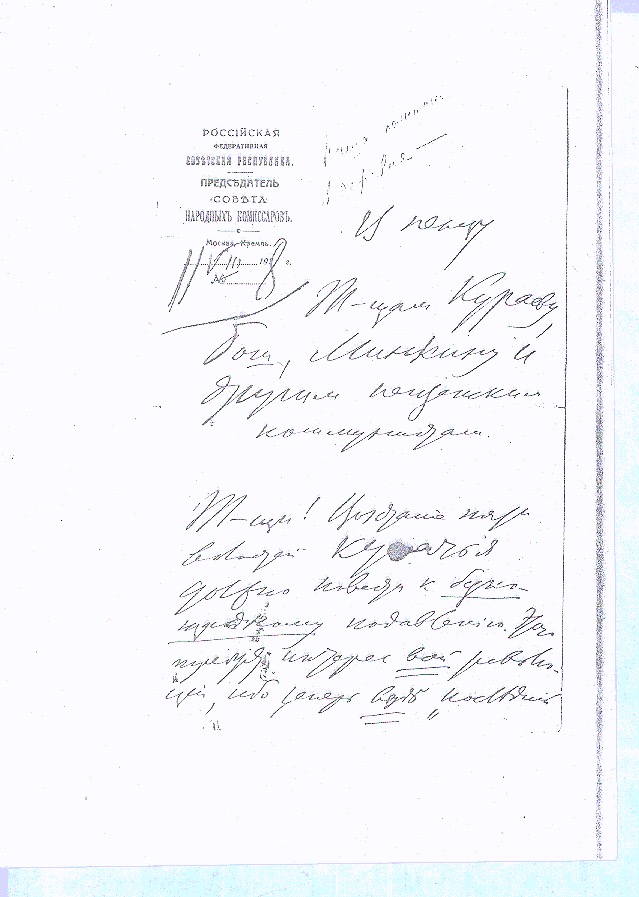 РОССІЙСКАЯ
ФЕДЕРАТИВНАЯ
СОВѢТСКАЯ РЕСПУБЛИКА.
ПРЕДСѢДАТЕЛЬ
СОВѢТА
НАРОДНЫХЪ КОМИССАРОВЪ.
Москва, Кремль.
11/VIII 1918 г.
№
В Пензу
Т-щам Кураеву,
Бош, Минкину и
другим пензенским
коммунистам.
Т-щи! Возстание пяти
волостей кулачья
должно повести к беспо-
щадному подавлению. Этого
требует интерес всей револю-
ции, ибо теперь взят „последний